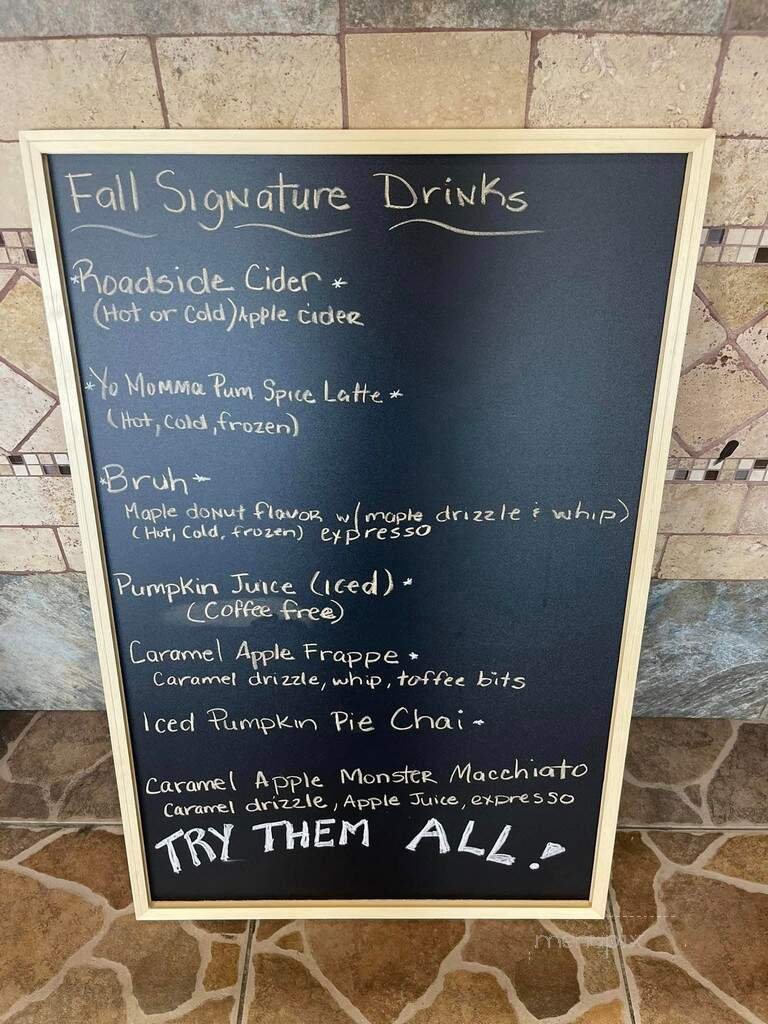 Fall Signature Drinks
*Roadside Cider *
(Hot or Cold) Apple cider
*Yo Momma Pum Spice Latte *
(Hot, Cold, frozen)
*Bruh *
Maple donut flavor w/ maple drizzle & whip)
(Hot, Cold, frozen) expresso
Pumpkin Juice (iced) *
(Coffee free)
Caramel Apple Frappe *
Caramel drizzle, whip, toffee bits
Iced Pumpkin Pie Chai *
Caramel Apple Monster Macchiato
Caramel drizzle, Apple Juice, expresso
TRY THEM ALL!
menupix